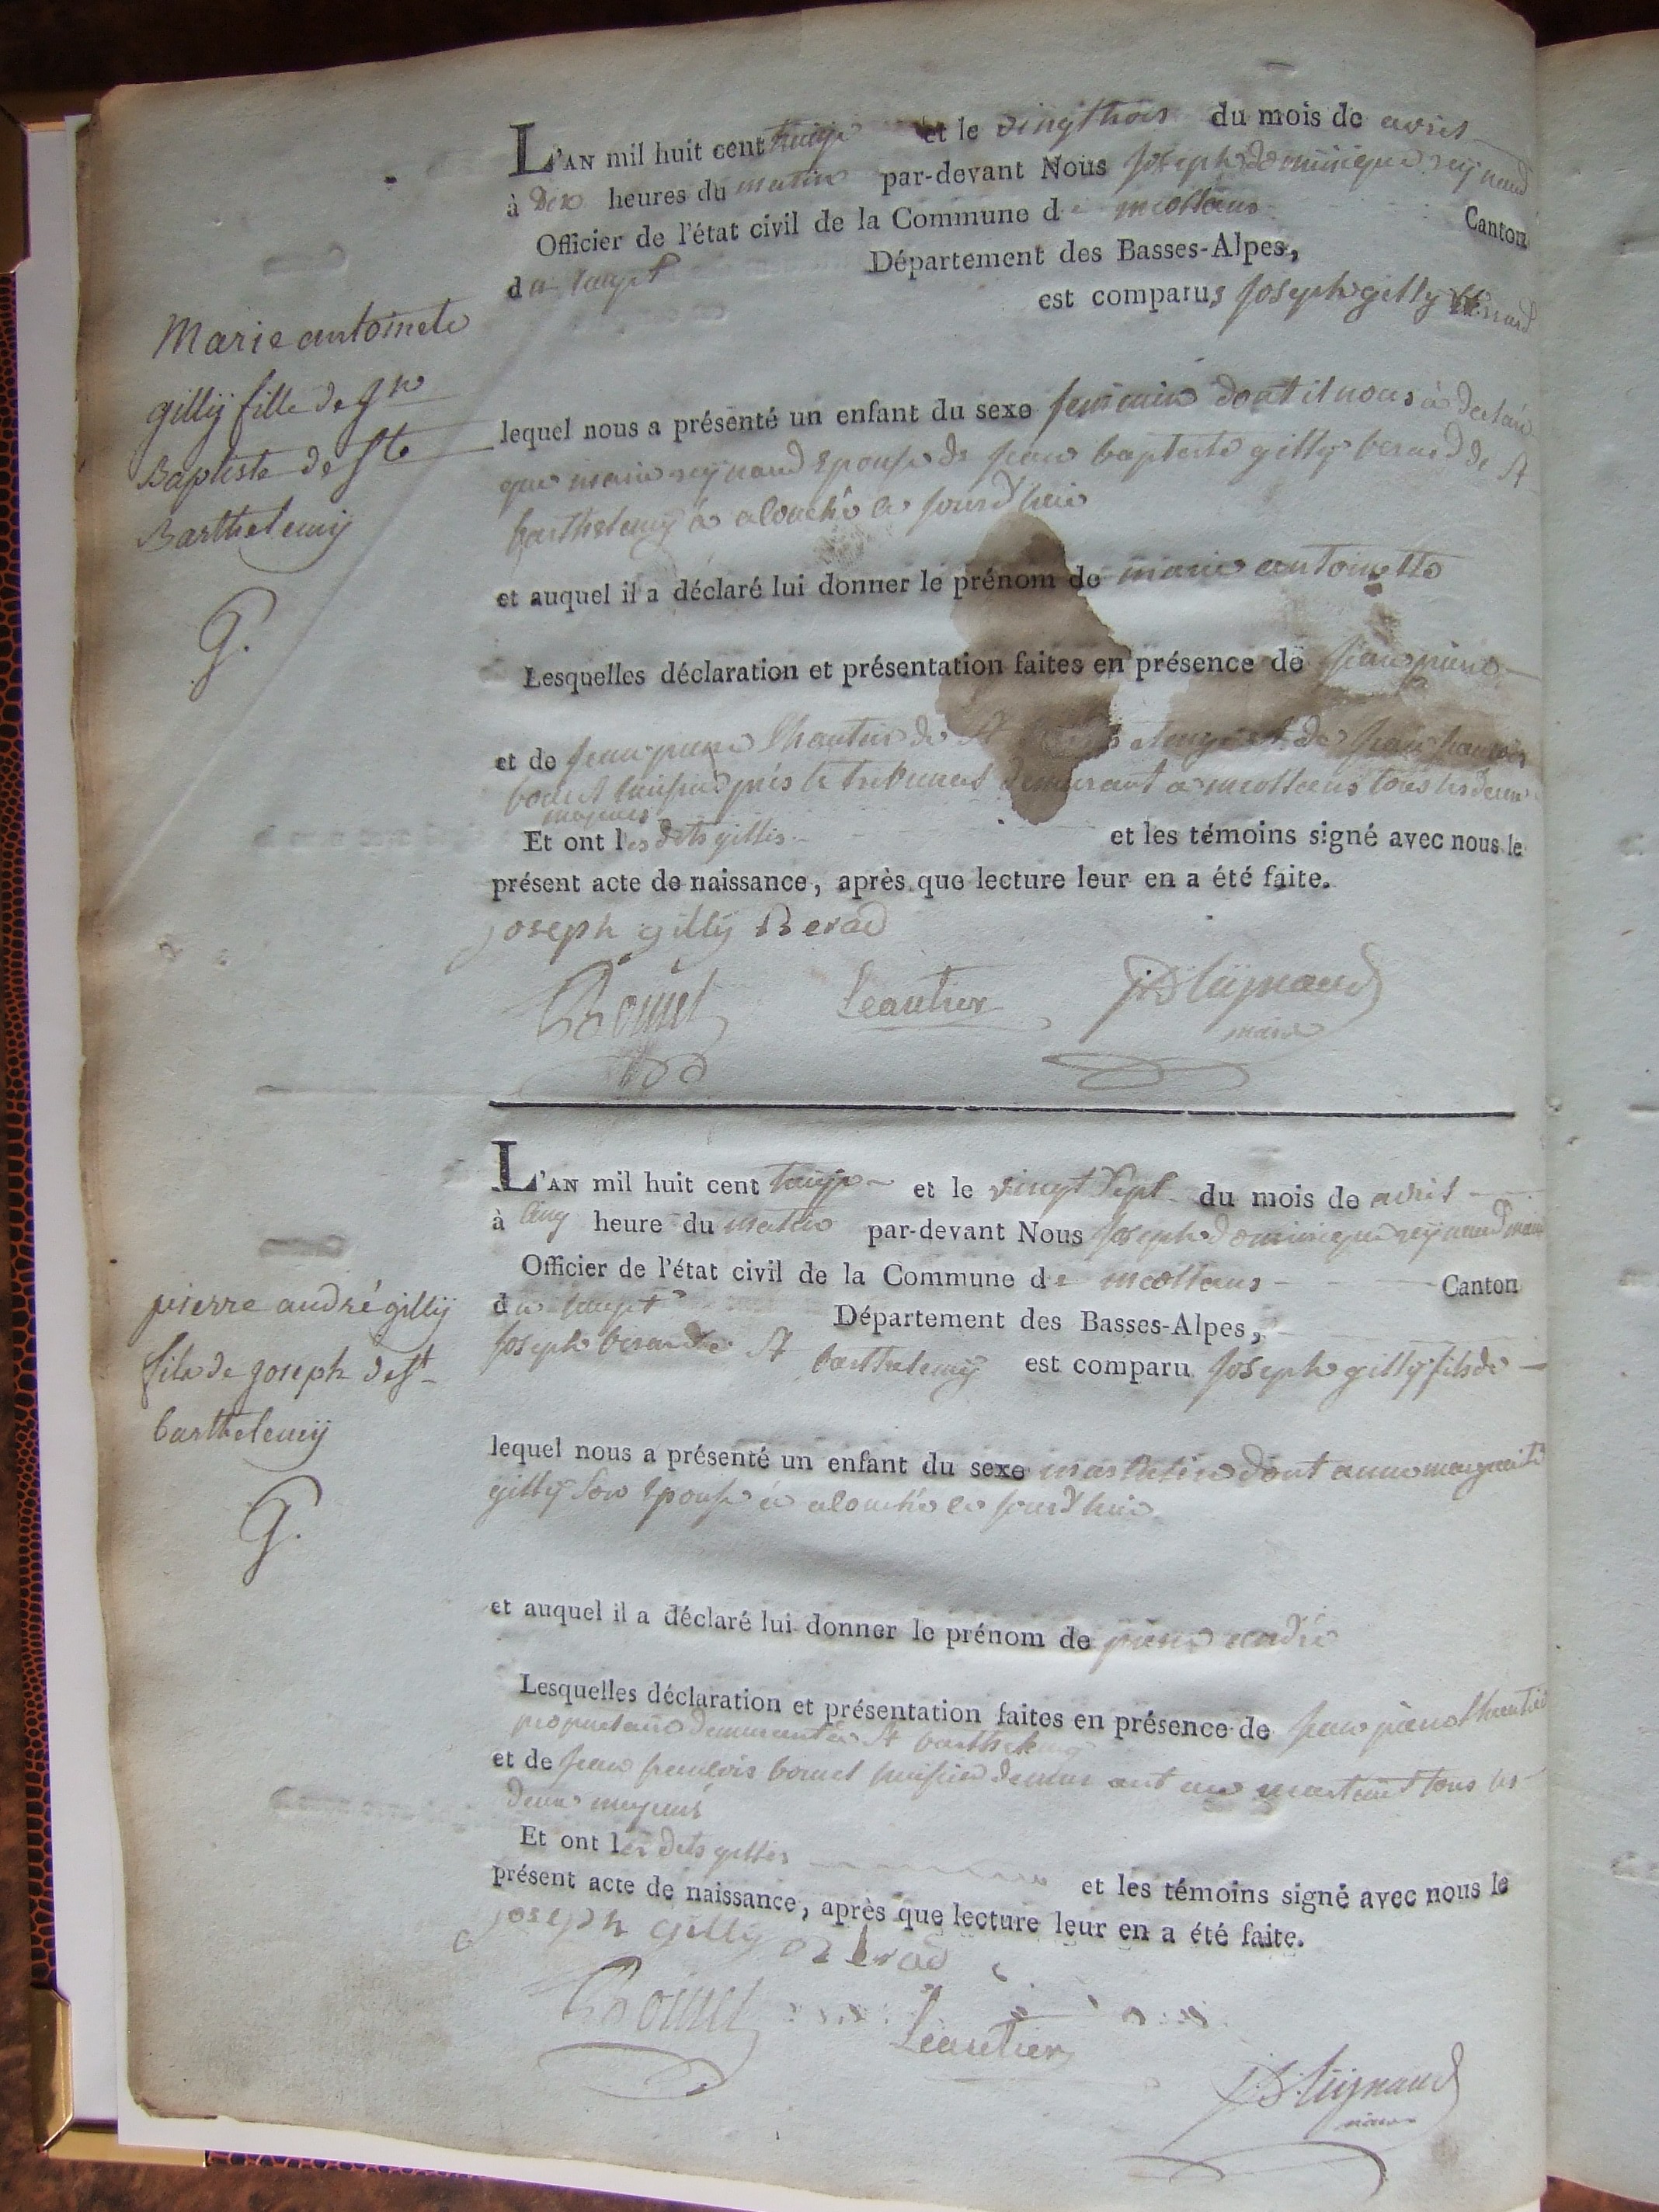 L'AN mil huit cent et le vingthois du mois de avril
à Dix heures du matin par-devant Nous Joseph dominique reynaud
Officier de l'état civil de la Commune de meollans Canton
du lauzet Département des Basses-Alpes,
est comparus Joseph gilly
Marie antoinete
gillÿ fille de Jn
Baptiste de St
Barthelemÿ
G.
lequel nous a présenté un enfant du sexe feminin dont il nous à declaré
que marie reynaud epouse de jean baptiste gilly berard de St
barthelemy à alouché ce jourd'hui
et auquel il a déclaré lui donner le prénom de marie antoinette
Lesquelles déclaration et présentation faites en présence de jean pierre
et de jean pierre lhautier de St et de jean francois
bouet près le tribunal demurant a meollans tous les deux
majeurs
Et ont les dits gillis et les témoins signé avec nous le
présent acte de naissance, après que lecture leur en a été faite.
joseph gillÿ Berad
Leautier JD Reÿnaud
maire
L'AN mil huit cent et le vingt sept du mois de avril
à cinq heure du matin par-devant Nous Joseph dominique reynaud maire
Officier de l'état civil de la Commune de meollans Canton
du lauzet Département des Basses-Alpes,
Joseph berard de St barthelemÿ est comparu Joseph gilly fils de
pierre andré gillÿ
fils de joseph de St
barthelemÿ
G.
lequel nous a présenté un enfant du sexe masculin dont anne marguerite
gillÿ son epouse à alouché ce jourd'hui
et auquel il a déclaré lui donner le prénom de pierre andré
Lesquelles déclaration et présentation faites en présence de jean pierre lhautier
propriétaire demurant à St barthelemy
et de jean francois bouet demurant au tous les
deux majeurs
Et ont les dits gillis et les témoins signé avec nous le
présent acte de naissance, après que lecture leur en a été faite.
joseph gillÿ berad
Leautier
JD Reÿnaud
maire